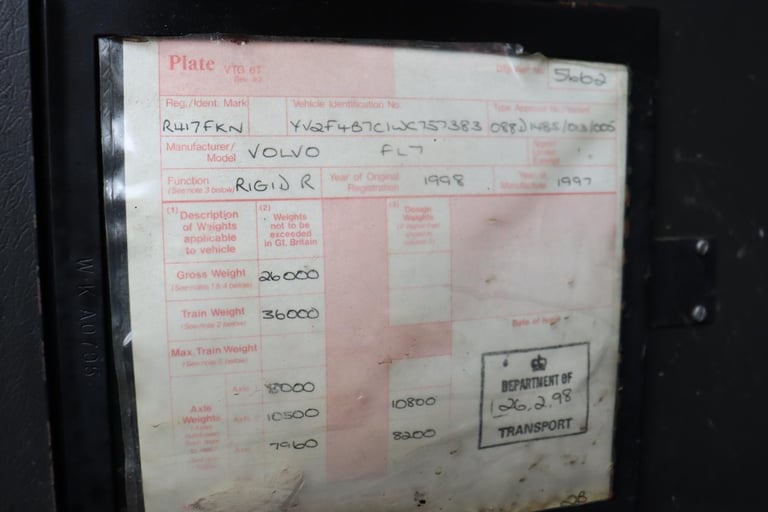 Plate VTG 6T
5602
Reg./Ident. Mark Vehicle Identification No. Type Approval No./Variant
R417FKN YV2F4B7C1WC757383 088D1485/013/005
Manufacturer/ Model VOLVO FL7
Function (See note 3 below) RIGID R Year of Original Registration 1998 Year of Manufacture 1997
(1) Description of Weights applicable to vehicle
(2) Weights not to be exceeded in Gt. Britain
(3) Design Weights
Gross Weight 26000
(See notes 1 & 4 below)
Train Weight 36000
(See note 2 below)
Max. Train Weight
Axle 8000
Axle Weights
Axle 10500 10800
Axle 7960 8200
Date of Issue
DEPARTMENT OF
26.2.98
TRANSPORT
WKA0795